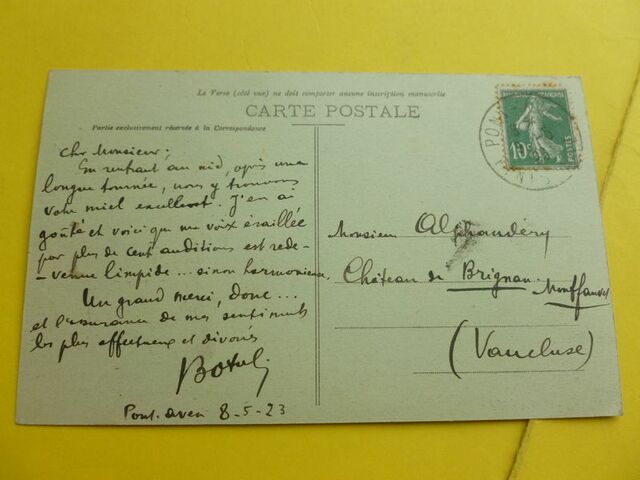 Le Verso (côté vue) ne doit comporter aucune inscription manuscrite
CARTE POSTALE
Partie exclusivement réservée à la Correspondance
Cher Monsieur:
En rentrant au nid, après une
longue tournée, nous y trouvons
votre miel excellent. J'en ai
goûté et voici que ma voix éraillée
par plus de cent auditions est rede-
-venue limpide... sinon harmonieuse.
Un grand merci, donc...
et l'assurance de mes sentiments
les plus affectueux et dévoués
Botrel
Pont-aven 8-5-23
10c
POSTES
PON
Monsieur Alphandéry
Château de Brignan.
Montfavet
(Vaucluse)